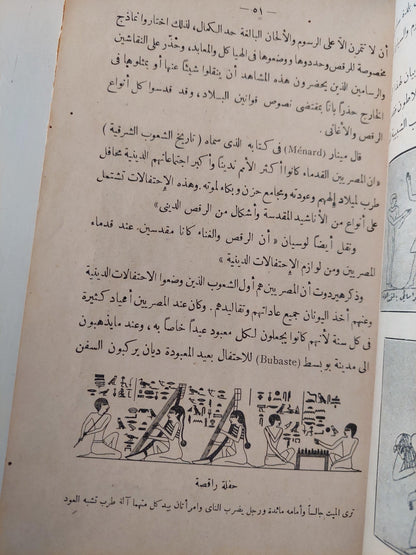 — ٥١ —
أن لا تتمرن الاّ على الرسوم والألحان البالغة حد الكمال، لذلك اختاروا نماذج
مخصوصة للرقص وحددوها ووضعوها فى الهياكل والمعابد، وحُذّر على النقاشين
والرسامين الذين يحضرون هذه المشاهد أن ينقلوا شيئًا عنها أو يمثلوها فى
الخارج حذرًا باتًا بمقتضى نصوص قوانين البلاد، وقد قدسوا كل أنواع
الرقص والأغانى.
قال مينار (Ménard) فى كتابه الذى سماه ( تاريخ الشعوب الشرقية )
«ان المصريين القدماء كانوا أكثر الأمم تدينًا وأكبر اجتماعاتهم الدينية محافل
طرب لميلاد إلههم وعودته ومجامع حزن وبكاء لموته. وهذه الإحتفالات تشتمل
على أنواع من الأناشيد المقدسة وأشكال من الرقص الدينى»
ونقل أيضًا لوسيان « أن الرقص والغناء كانا مقدسين. عند قدماء
المصريين ومن لوازم الإحتفالات الدينية »
وذكر هيردوت أن المصريين هم أول الشعوب الذين وضعوا الاحتفالات الدينية
وعنهم أخذ اليونان جميع عاداتهم وتقاليدهم. وكان عند المصريين أعياد كثيرة
فى كل سنة لأنهم كانوا يجعلون لكل معبود عيدًا خاصًا به، وعند ما يذهبون
الى مدينة بوبسط (Bubaste) للاحتفال بعيد المعبودة ديان يركبون السفن
حفلة راقصة
ترى الميت جالسًا وأمامه مائدة ورجل يضرب الناى وامرأتان بيد كل منهما آلة طرب تشبه العود